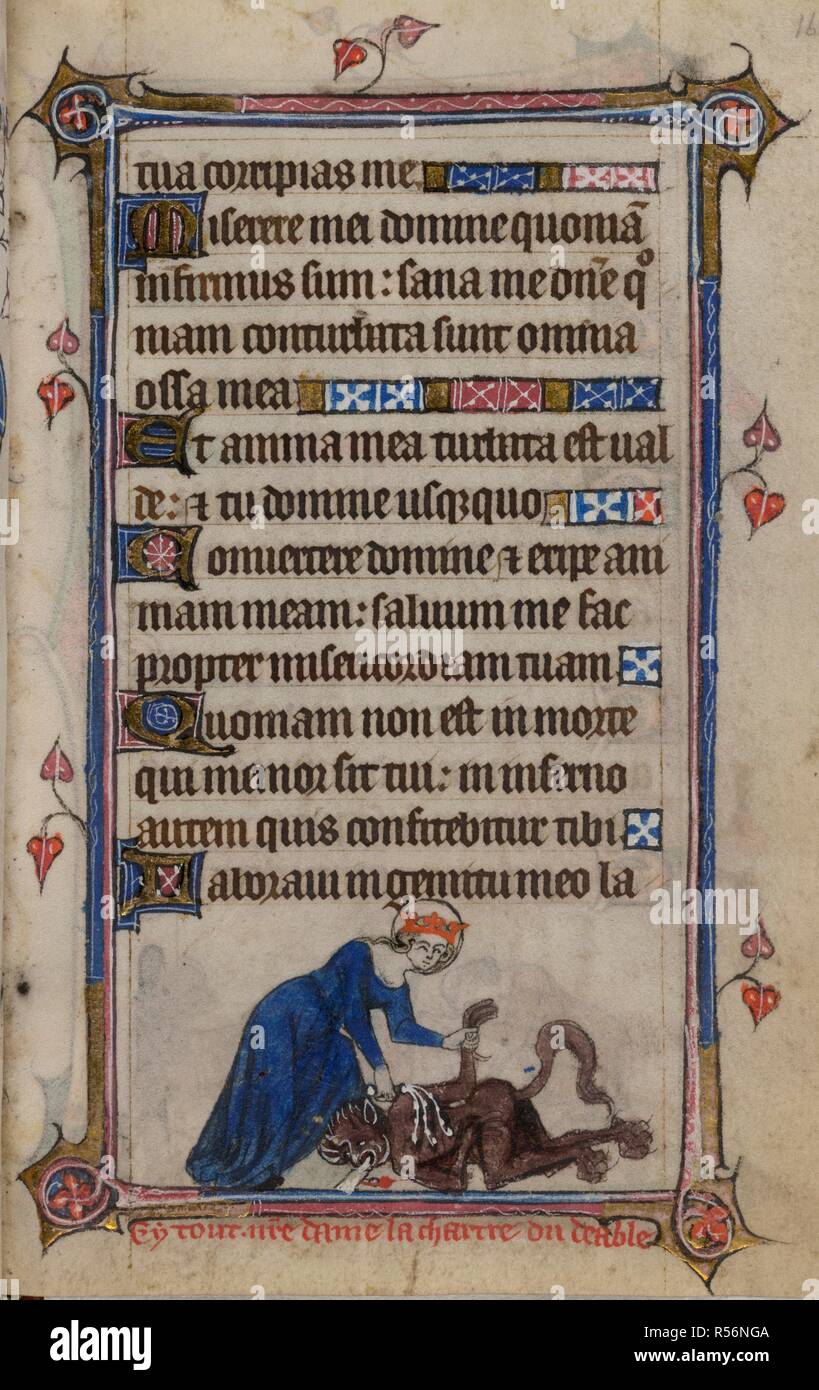 tua corripias me
Miserere mei domine quoniā
infirmus sum: sana me dn̄e qͦ
niam conturbata sunt omnia
ossa mea
Et anima mea turbata est ual
de: ⁊ tu domine usqꝫ quo
Conuertere domine ⁊ eripe ani
mam meam: saluum me fac
propter misericordiam tuam
Quoniam non est in morte
qui memor sit tui: in inferno
autem quis confitebitur tibi
Laboraui in gemitu meo la
Cy tout nr̄e dame la chartre du deable
alamy
Image ID: R56NGA
www.alamy.com